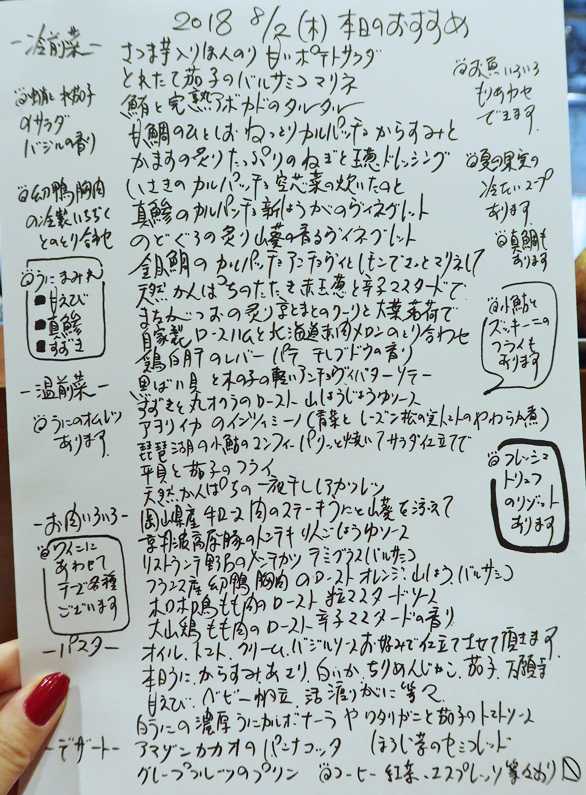 2018 8/2(木) 本日のおすすめ
-冷前菜-
さつま芋入りほんのり甘いポテトサラダ
とれたて茄子のバルサミコマリネ
鮪と完熟アボカドのタルタル
甘鯛のひとしお ねっとりカルパッチョ からすみと
かますの炙り たっぷりのねぎと玉葱ドレッシング
いさきのカルパッチョ 空芯菜の炊いたのと
真鯵のカルパッチョ 新しょうがのヴィネグレット
のどぐろの炙り 山葵の香るヴィネグレット
金目鯛のカルパッチョ アンチョヴィとレモンでさっとマリネして
天然かんぱちのたたき 赤玉葱と辛子マスタードで
まながつおの炙り 大葉茗荷で
自家製ロースハムと北海道赤肉メロンのとり合わせ
鶏白肝のレバーパテ 干しブドウの香り
水茄子
のサラダ
バジルの香り
幼鴨胸肉
の冷製 いちじく
とのとり合わせ
うにまみれ
■甘えび
■真鯵
■すずき
お魚いろいろ
もりあわせ
できます。
夏の果実の
冷たいスープ
あります
真鯛も
あります
小鮎と
ズッキーニの
フライも
あります
-温前菜-
うにのオムレツ
あります。
黒ばい貝と木の子の軽いアンチョヴィバターソテー
すずきと丸オクラのロースト 山しょうじょうゆソース
アオリイカのインツィミーノ(青菜とレーズン松の実トマトのやわらか煮)
琵琶湖の小鮎のコンフィー パリッと焼いてサラダ仕立てで
平貝と茄子のフライ
天然かんぱちの一夜干しレアカツレツ
フレッシュ
トリュフ
のリゾット
あります
-お肉いろいろ-
岡山県産牛ロース肉のステーキ うにと山葵を添えて
京丹波高原豚のトンテキ りんごしょうゆソース
リストランテ野呂のメンチカツ デミグラス(バルサミコ)
フランス産幼鴨胸肉のロースト オレンジ、山しょうバルサミコ
ホロホロ鶏もも肉のロースト 粒マスタードソース
大山鶏もも肉のロースト 辛子マスタードの香り
ワインに
あわせて
チーズ各種
ございます
-パスタ-
オイル、トマト、クリーム、バジルソース お好みで仕立てさせて頂きます。
本日 うに、からすみ、あさり、白いか、ちりめんじゃこ、茄子、万願寺
甘えび、ベビー帆立、活渡りがに 等々
白うにの濃厚うにカルボナーラ や ワタリガニと茄子のトマトソース
-デザート-
アマゾンカカオのパンナコッタ ほうじ茶のセミフレッド
グレープフルーツのプリン コーヒー 紅茶、エスプレッソ 等々あり